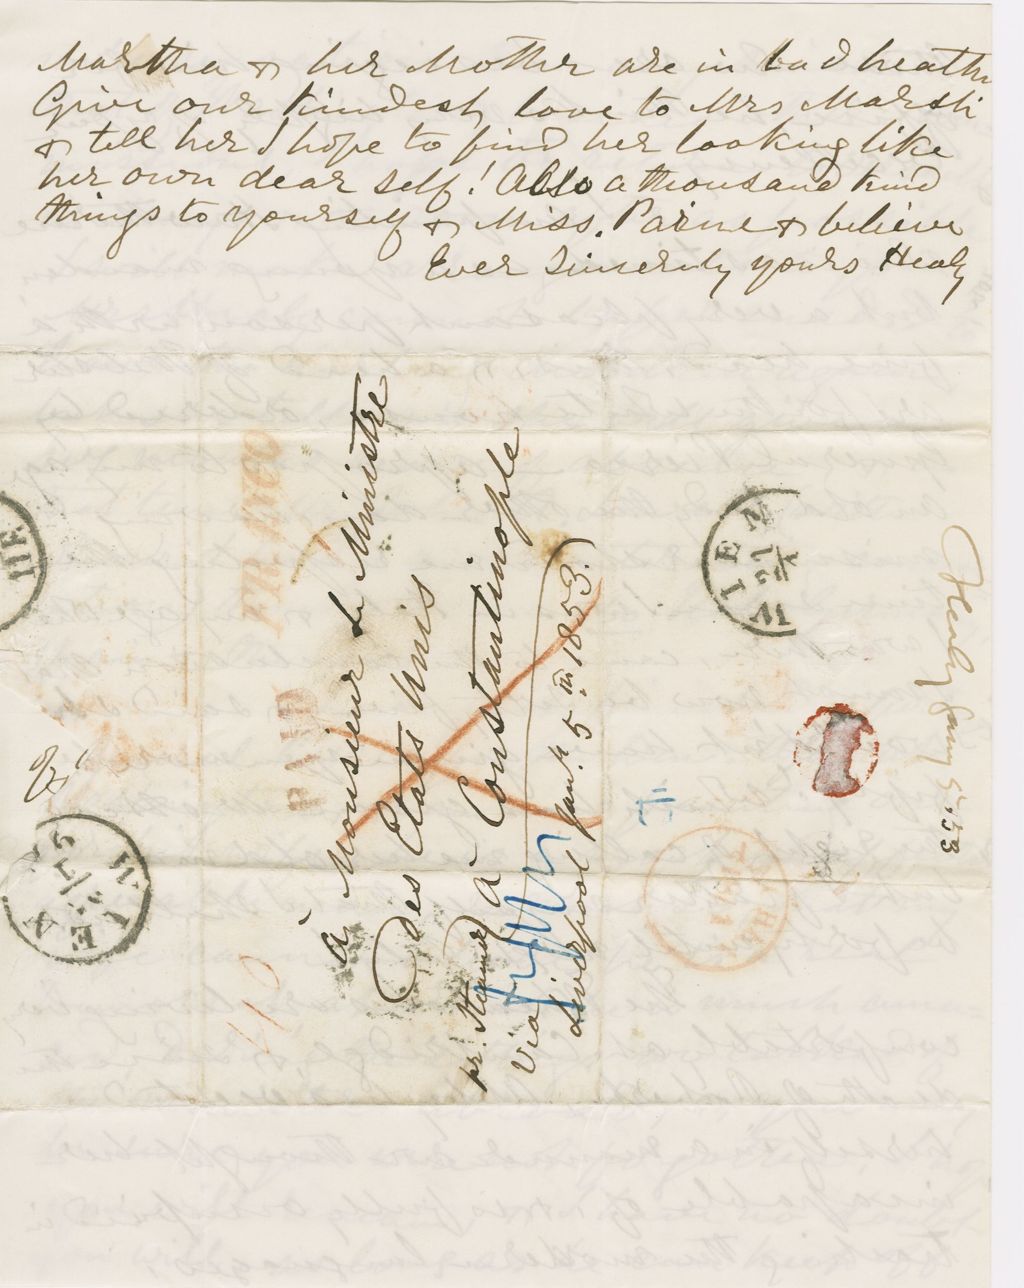 Martha & her Mother are in bad health
Give our kindest love to Mrs Marsh
& tell her I hope to find her looking like
her own dear self! Also a thousand kind
things to yourself & Miss. Paine & believe
Ever Sincerely yours Healy
à Monsieur Le Ministre
des Etats Unis
à Constantinople
pr. Steamer
Via
Liverpool Jany. 5th. 1853.
FRANCO
PAID
WIEN
WIEN
Healy Jany 5".53
40